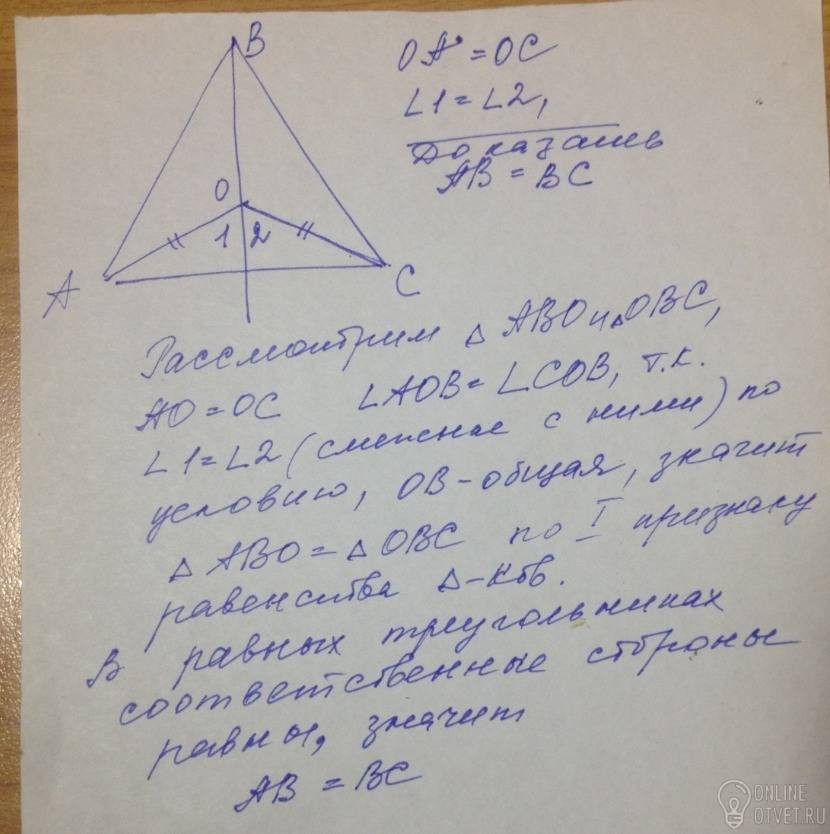 B
OA = OC
L1 = L2,
Доказать
AB = BC
O
1 2
A
C
Рассмотрим △ ABO и △ OBC,
AO = OC LAOB = LCOB, т.к.
L1 = L2 (смежные с ними) по
условию, OB - общая, значит
△ ABO = △ OBC по I признаку
равенства △-ков.
В равных треугольниках
соответственные стороны
равны, значит
AB = BC
ONLINE
OTVET.RU